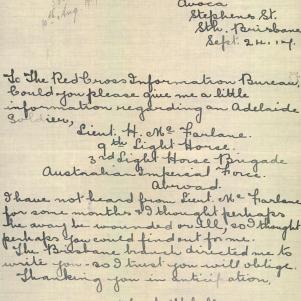 Avoca
Stephens St.
Sth. Brisbane
Sept. 24. 17.
10th Aug
To The Red Cross Information Bureau.
Could you please give me a little
information regarding an Adelaide
Soldier,
Lieut. H. McFarlane.
9th Light Horse.
3rd Light Horse Brigade
Australian Imperial Force.
Abroad.
I have not heard from Lieut. McFarlane
for some months & I thought perhaps
he may be wounded or ill, so I thought
perhaps you could find out for me.
The Brisbane branch directed me to
write you - so I trust you will oblige.
Thanking you in anticipation,